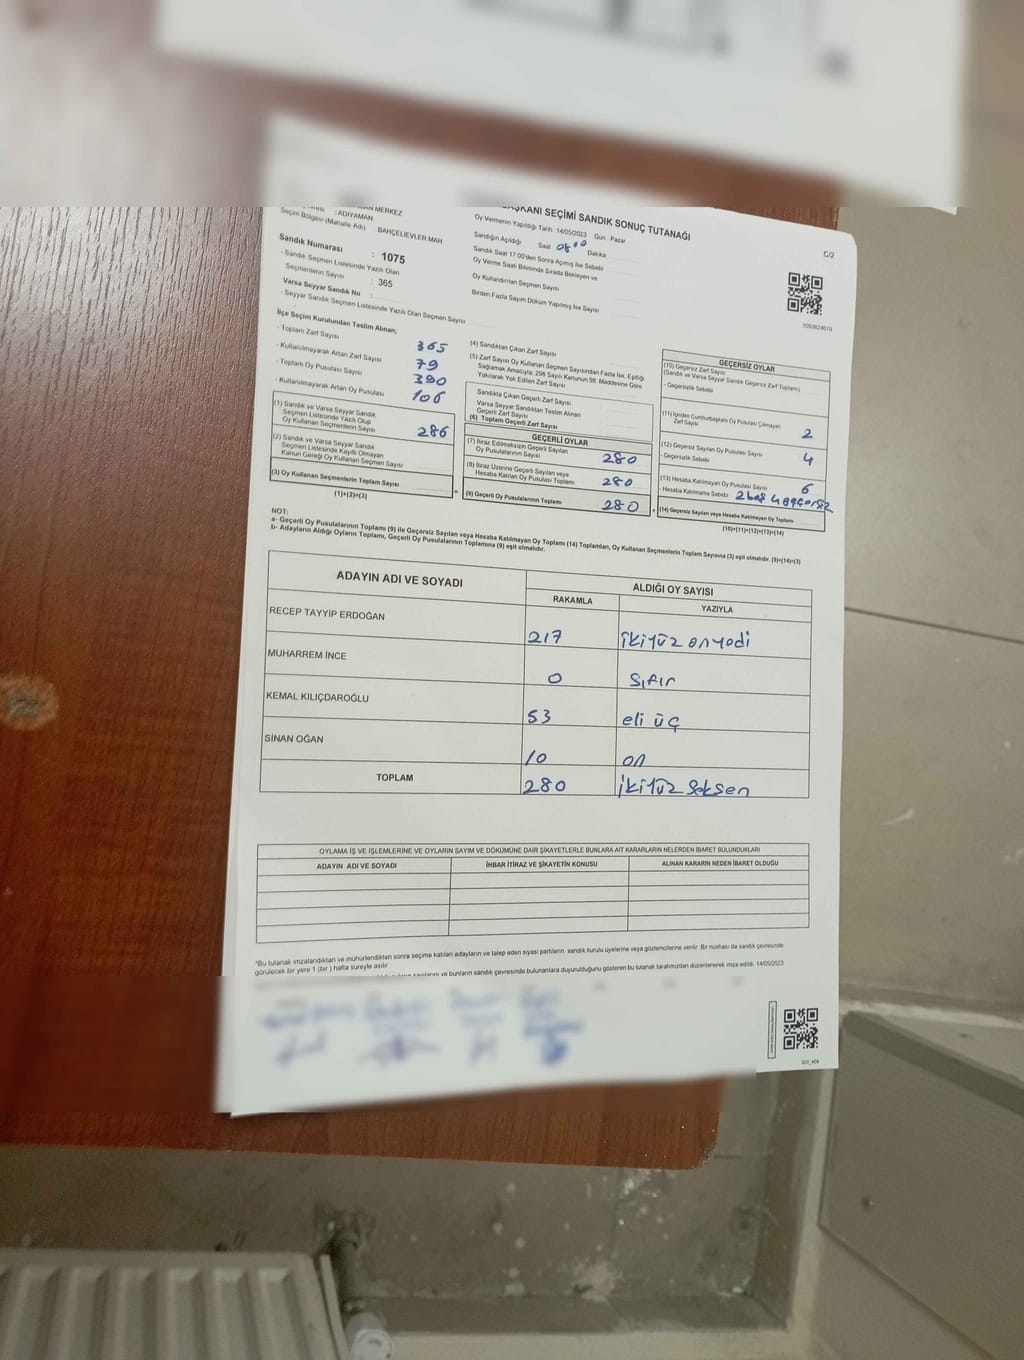 AŞKANI SEÇİMİ SANDIK SONUÇ TUTANAĞI
C/2
MERKEZ
: ADIYAMAN
Seçim Bölgesi (Mahalle Adı) : BAHÇELİEVLER MAH
Oy Vermenin Yapıldığı Tarih : 14/05/2023 Gün : Pazar
Sandığın Açıldığı Saat 08 00 Dakika
Sandık Saat 17:00'den Sonra Açılmış İse Sebebi
Oy Verme Saati Bitiminde Sırada Bekleyen ve
Oy Kullandırılan Seçmen Sayısı
Birden Fazla Sayım Döküm Yapılmış İse Sayısı
1093824619
Sandık Numarası : 1075
- Sandık Seçmen Listesinde Yazılı Olan
Seçmenlerin Sayısı : 365
Varsa Seyyar Sandık No :
- Seyyar Sandık Seçmen Listesinde Yazılı Olan Seçmen Sayısı
İlçe Seçim Kurulundan Teslim Alınan;
- Toplam Zarf Sayısı 365
- Kullanılmayarak Artan Zarf Sayısı 79
- Toplam Oy Pusulası Sayısı 390
- Kullanılmayarak Artan Oy Pusulası 106
(1) Sandık ve Varsa Seyyar Sandık
Seçmen Listesinde Yazılı Olup
Oy Kullanan Seçmenlerin Sayısı 286
(2) Sandık ve Varsa Seyyar Sandık
Seçmen Listesinde Kayıtlı Olmayan
Kanun Gereği Oy Kullanan Seçmen Sayısı
(3) Oy Kullanan Seçmenlerin Toplam Sayısı
(1)+(2)=(3)
(4) Sandıktan Çıkan Zarf Sayısı
(5) Zarf Sayısı Oy Kullanan Seçmen Sayısından Fazla İse, Eşitliği
Sağlamak Amacıyla, 298 Sayılı Kanunun 98. Maddesine Göre
Yakılarak Yok Edilen Zarf Sayısı
Sandıkta Çıkan Geçerli Zarf Sayısı
Varsa Seyyar Sandıktan Teslim Alınan
Geçerli Zarf Sayısı
(6) Toplam Geçerli Zarf Sayısı
GEÇERLİ OYLAR
(7) İtiraz Edilmeksizin Geçerli Sayılan
Oy Pusulalarının Sayısı 280
(8) İtiraz Üzerine Geçerli Sayılan veya
Hesaba Katılan Oy Pusulası Toplamı 280
(9) Geçerli Oy Pusulalarının Toplamı 280
GEÇERSİZ OYLAR
(10) Geçersiz Zarf Sayısı
(Sandık ve Varsa Seyyar Sandık Geçersiz Zarf Toplamı)
- Geçersizlik Sebebi
(11) İçinden Cumhurbaşkanı Oy Pusulası Çıkmayan
Zarf Sayısı 2
(12) Geçersiz Sayılan Oy Pusulası Sayısı 4
- Geçersizlik Sebebi
(13) Hesaba Katılmayan Oy Pusulası Sayısı 6
- Hesaba Katılmama Sebebi 2 boş 4 geçersiz
(14) Geçersiz Sayılan veya Hesaba Katılmayan Oy Toplamı
(10)+(11)+(12)+(13)=(14)
NOT:
a- Geçerli Oy Pusulalarının Toplamı (9) ile Geçersiz Sayılan veya Hesaba Katılmayan Oy Toplamı (14) Toplamları, Oy Kullanan Seçmenlerin Toplam Sayısına (3) eşit olmalıdır. (9)+(14)=(3)
b- Adayların Aldığı Oyların Toplamı, Geçerli Oy Pusulalarının Toplamına (9) eşit olmalıdır.
ADAYIN ADI VE SOYADI ALDIĞI OY SAYISI
RAKAMLA YAZIYLA
RECEP TAYYİP ERDOĞAN 217 ikiyüz onyedi
MUHARREM İNCE 0 Sıfır
KEMAL KILIÇDAROĞLU 53 eli üç
SİNAN OĞAN 10 on
TOPLAM 280 ikiyüz seksen
OYLAMA İŞ VE İŞLEMLERİNE VE OYLARIN SAYIM VE DÖKÜMÜNE DAİR ŞİKAYETLERLE BUNLARA AİT KARARLARIN NELERDEN İBARET BULUNDUKLARI
ADAYIN ADI VE SOYADI İHBAR İTİRAZ VE ŞİKAYETİN KONUSU ALINAN KARARIN NEDEN İBARET OLDUĞU
*Bu tutanak imzalandıktan ve mühürlendikten sonra seçime katılan adayların ve talep eden siyasi partilerin sandık kurulu üyelerine veya gözlemcilerine verilir. Bir nüshası da sandık çevresinde
görülecek bir yere 1 (bir) hafta süreyle asılır.
ve bunların sandık çevresinde bulunanlara duyurulduğunu gösteren bu tutanak tarafımızdan düzenlenerek imza edildi. 14/05/2023